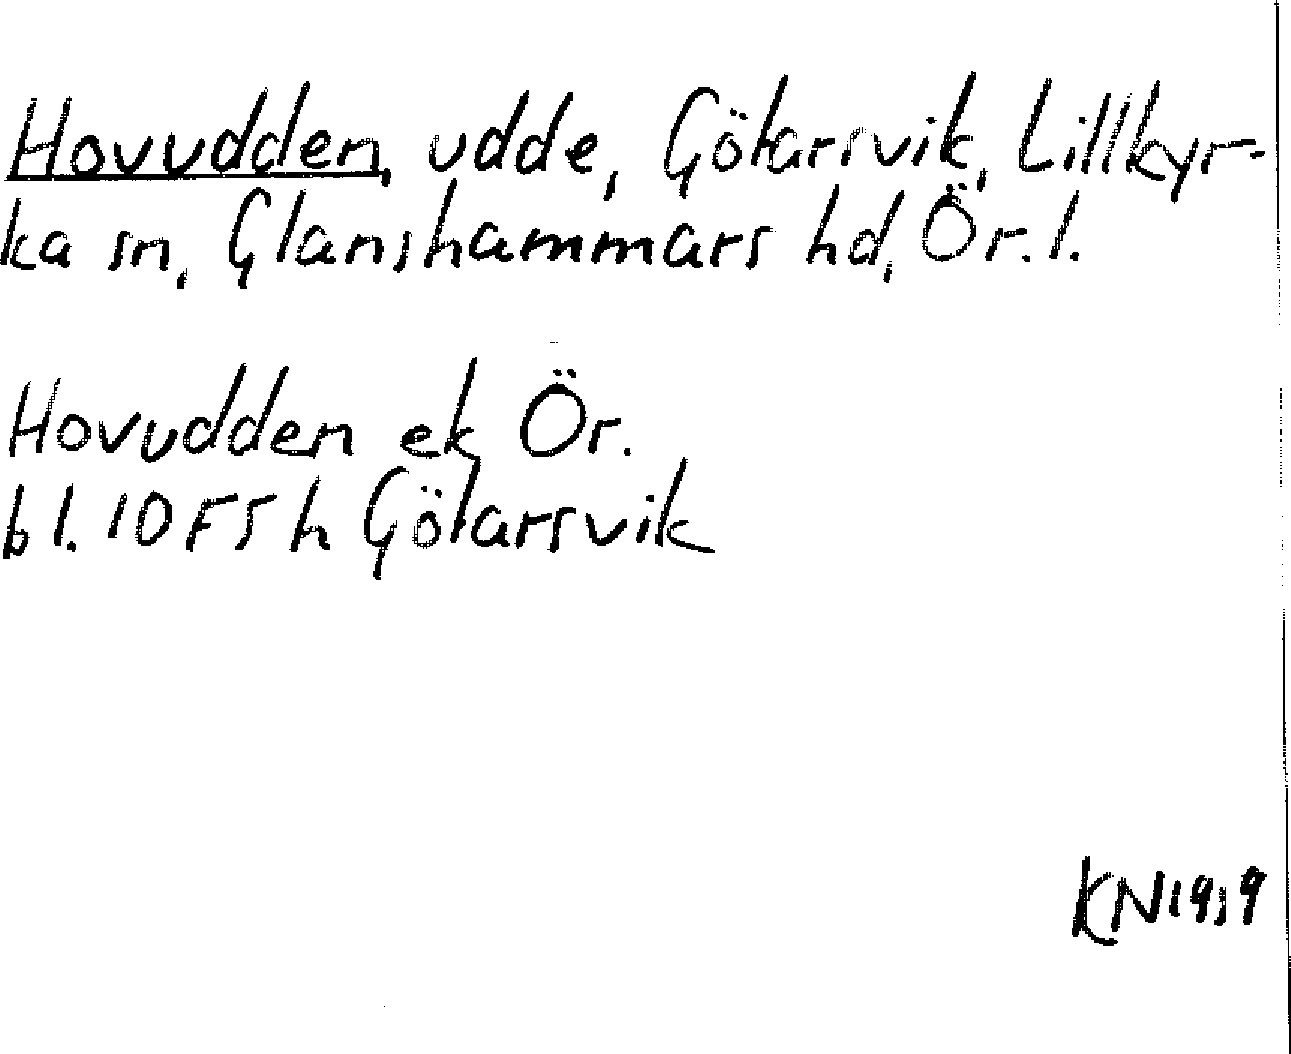 Hovudden, udde, Götarsvik, Lillkyr-
ka sn, Glanshammars hd, Ör. l.
Hovudden ek Ör.
bl. 10F5h Götarsvik
KN 1919